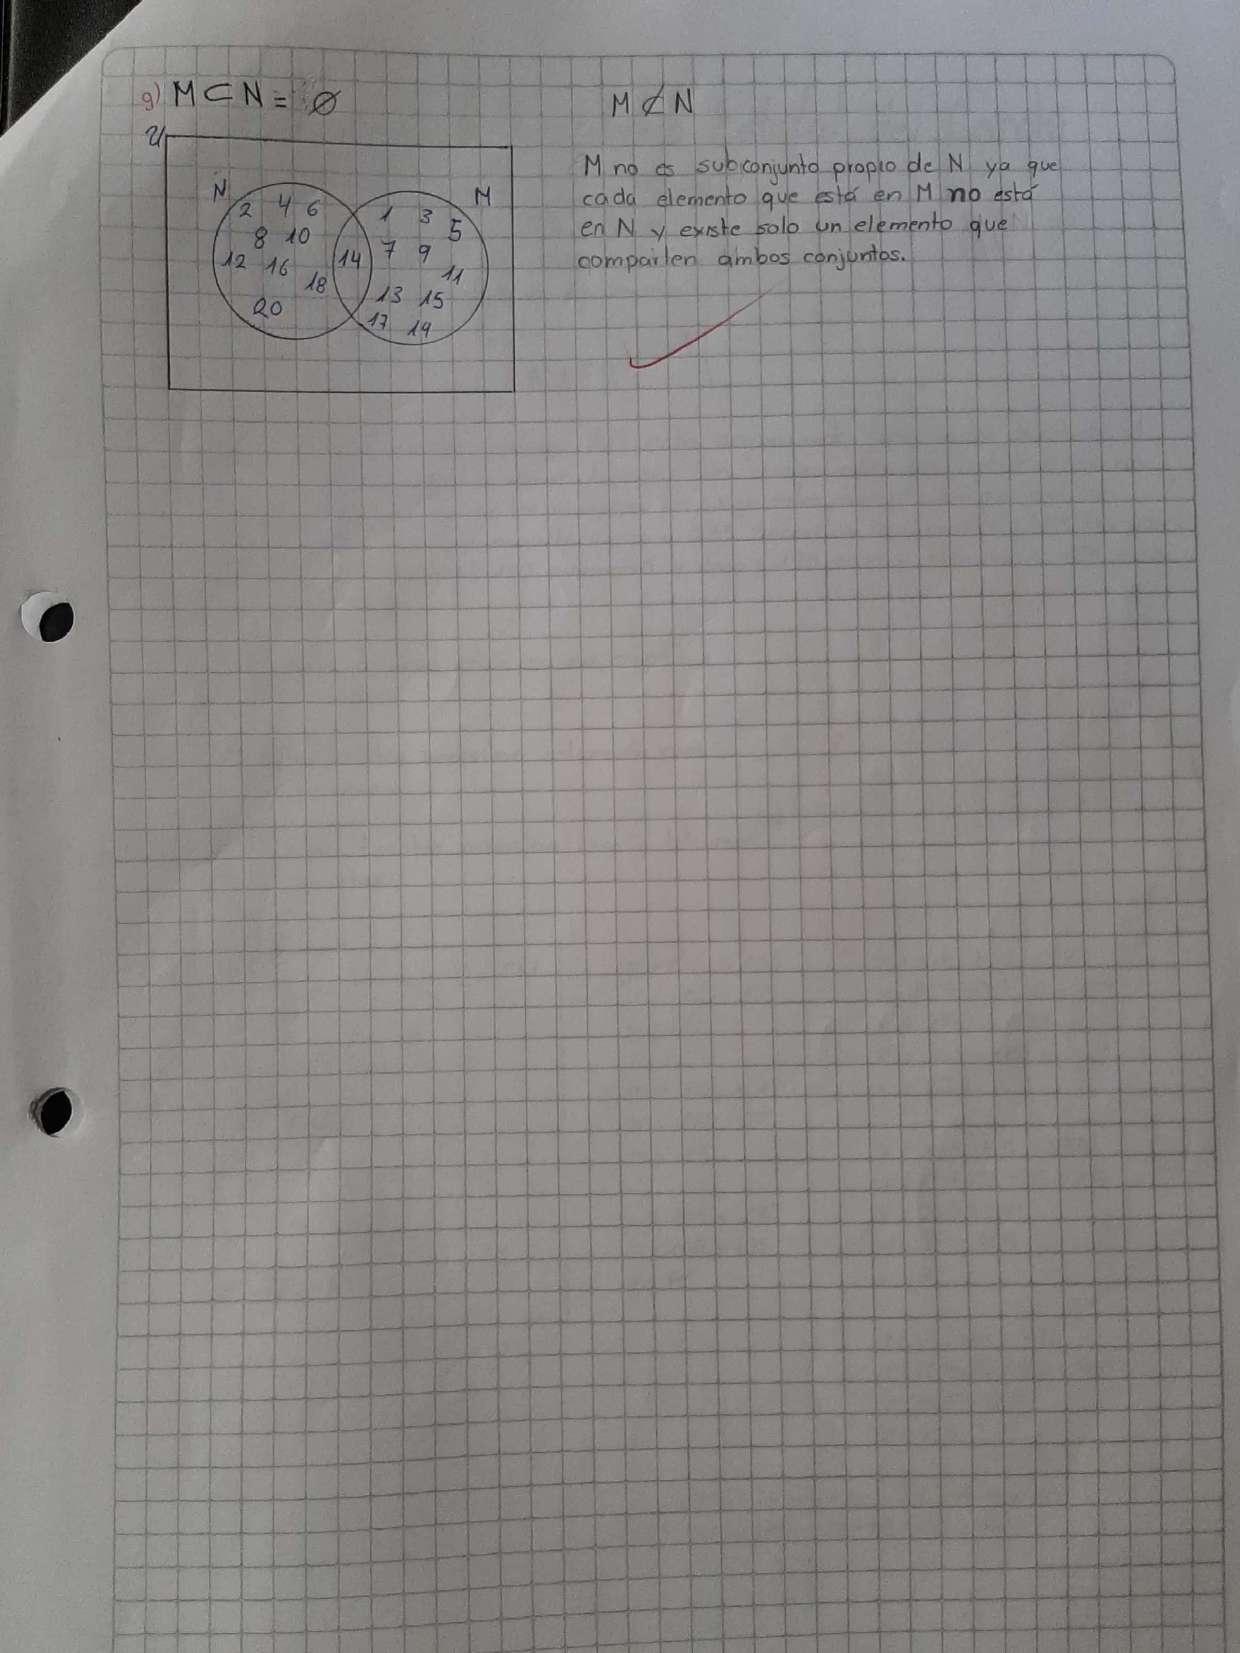 g) M ⊂ N = ∅
M ⊄ N
U
N
M
2 4 6
8 10
12 16
18
20
14
1 3
5
7 9
11
13 15
17 19
M no es subconjunto propio de N ya que
cada elemento que está en M no está
en N y existe solo un elemento que
comparten ambos conjuntos.